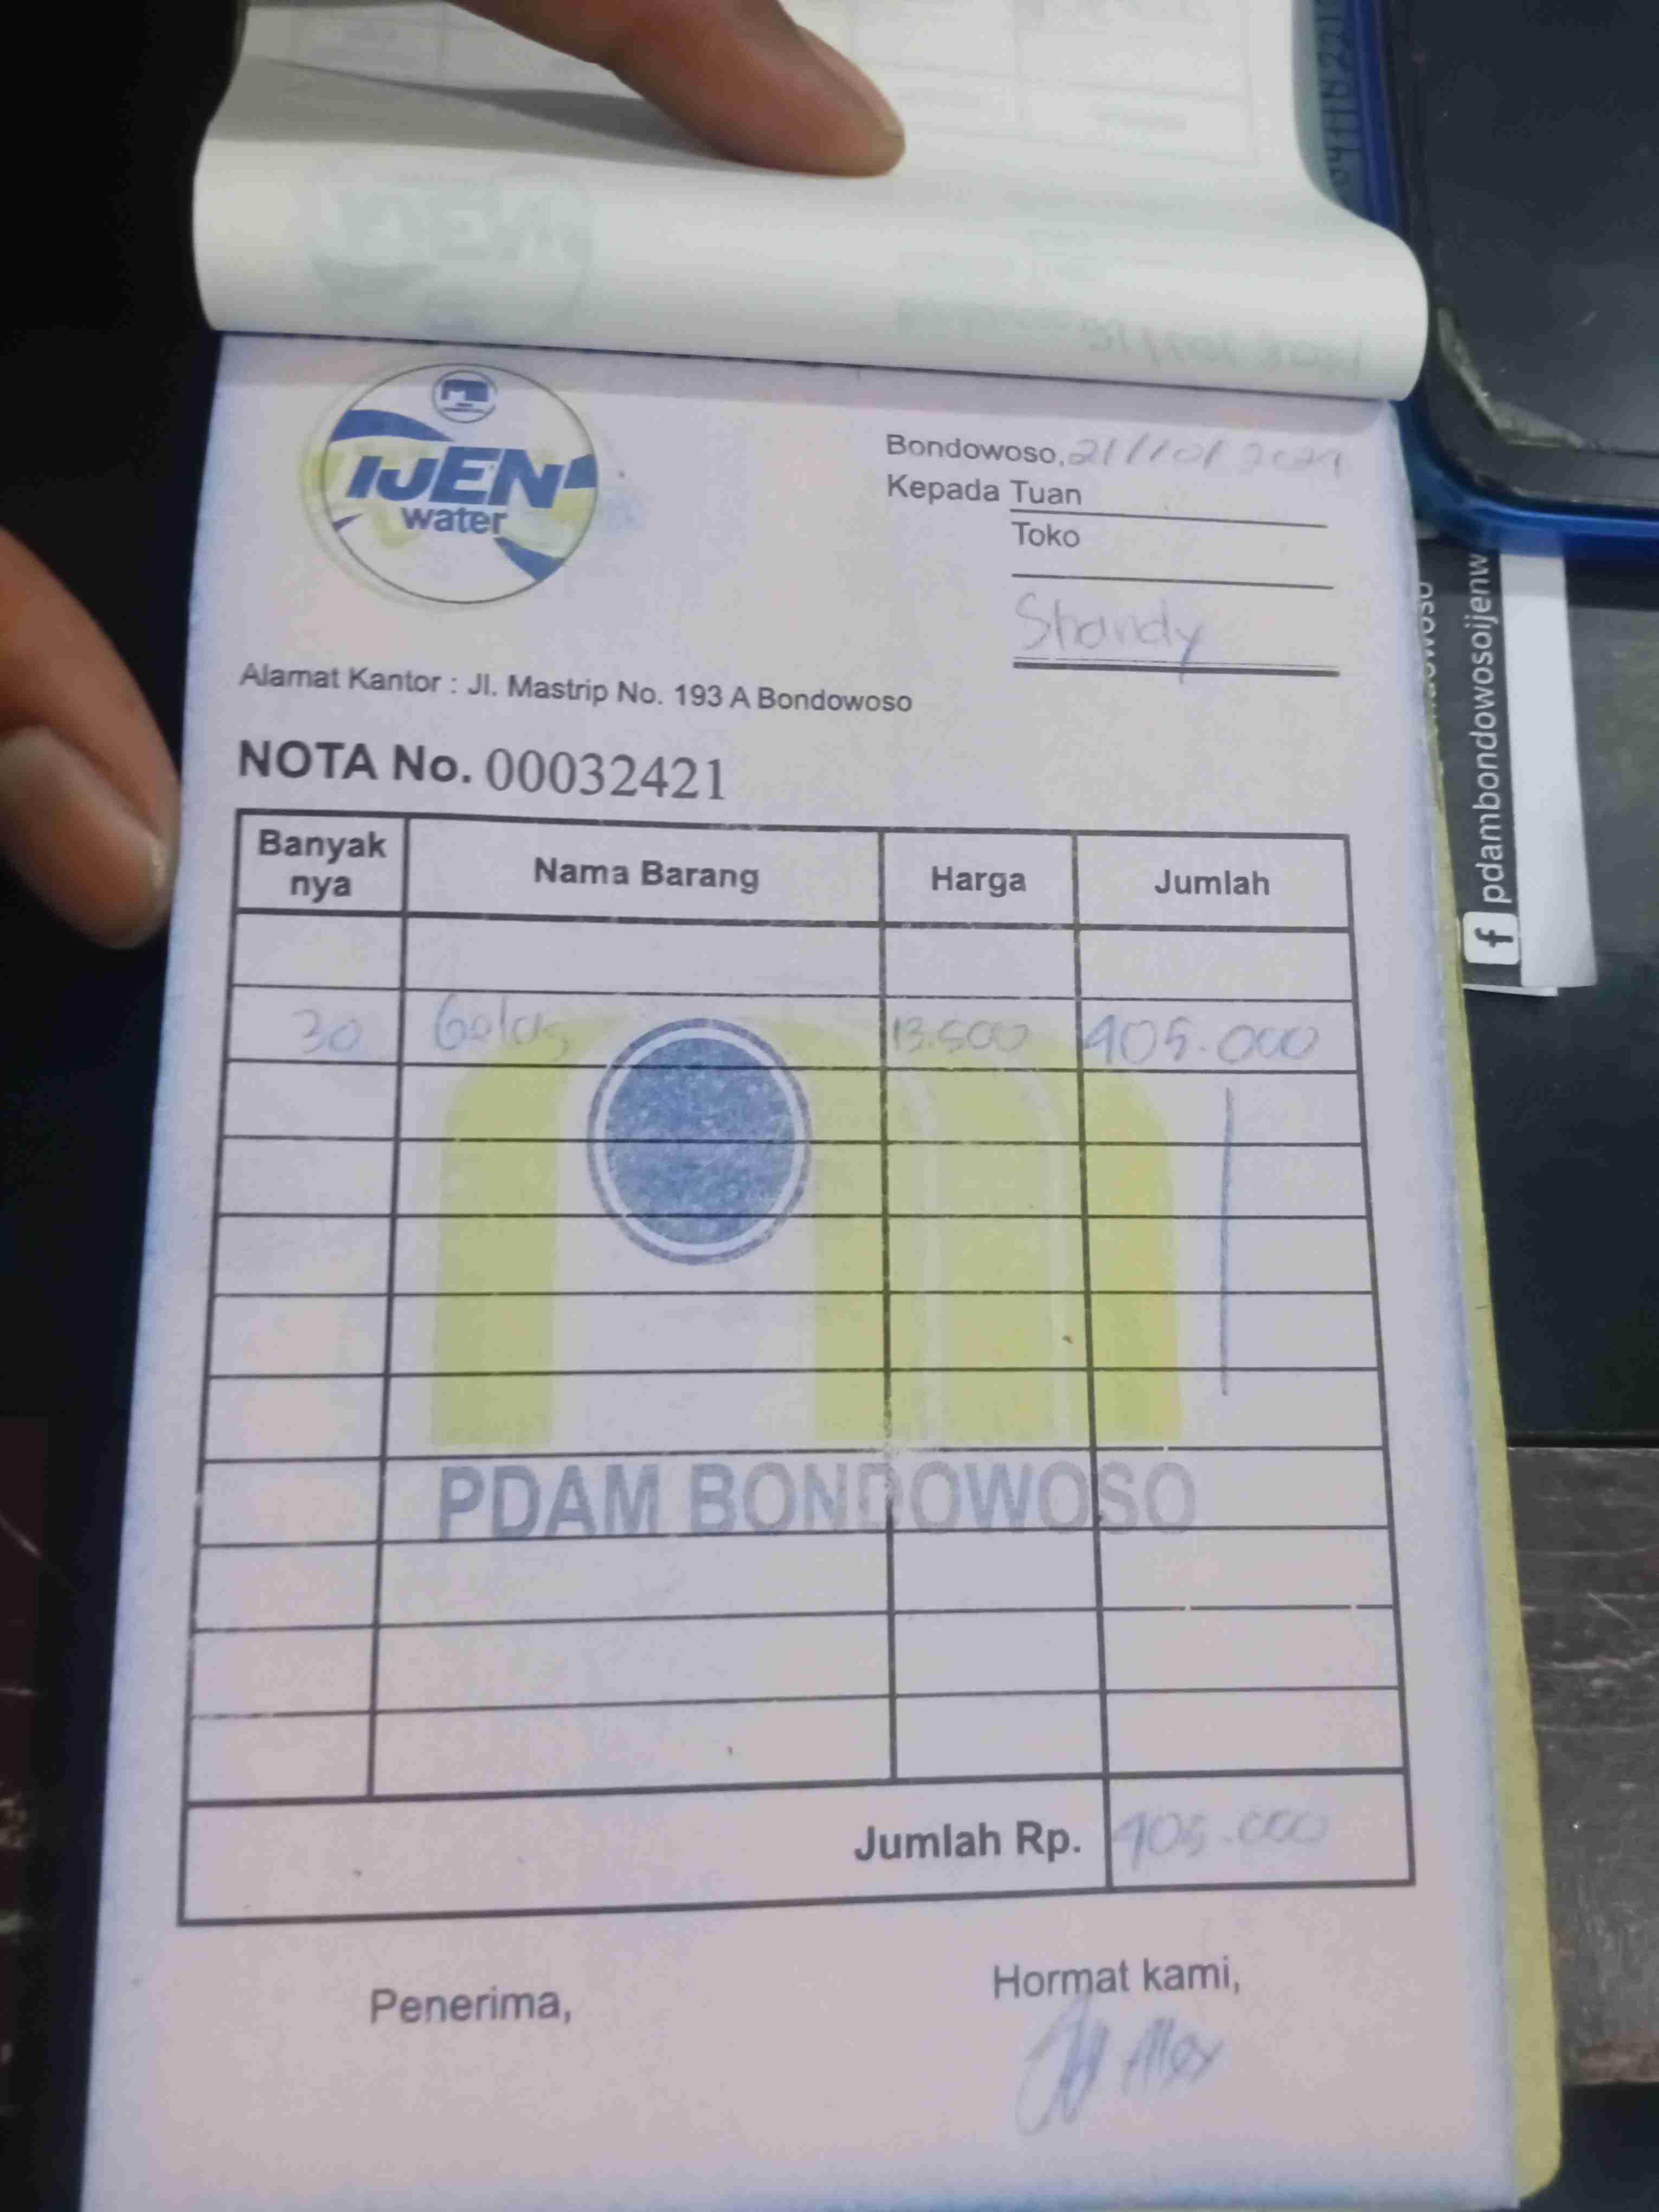 IJEN
water
Bondowoso, 21/10/2024
Kepada Tuan
Toko
Shandy
Alamat Kantor : Jl. Mastrip No. 193 A Bondowoso
NOTA No. 00032421
Banyak nya Nama Barang Harga Jumlah
30 Gelas 13.500 405.000
PDAM BONDOWOSO
Jumlah Rp. 405.000
Penerima,
Hormat kami,
Alex
pdambondowosoijenw